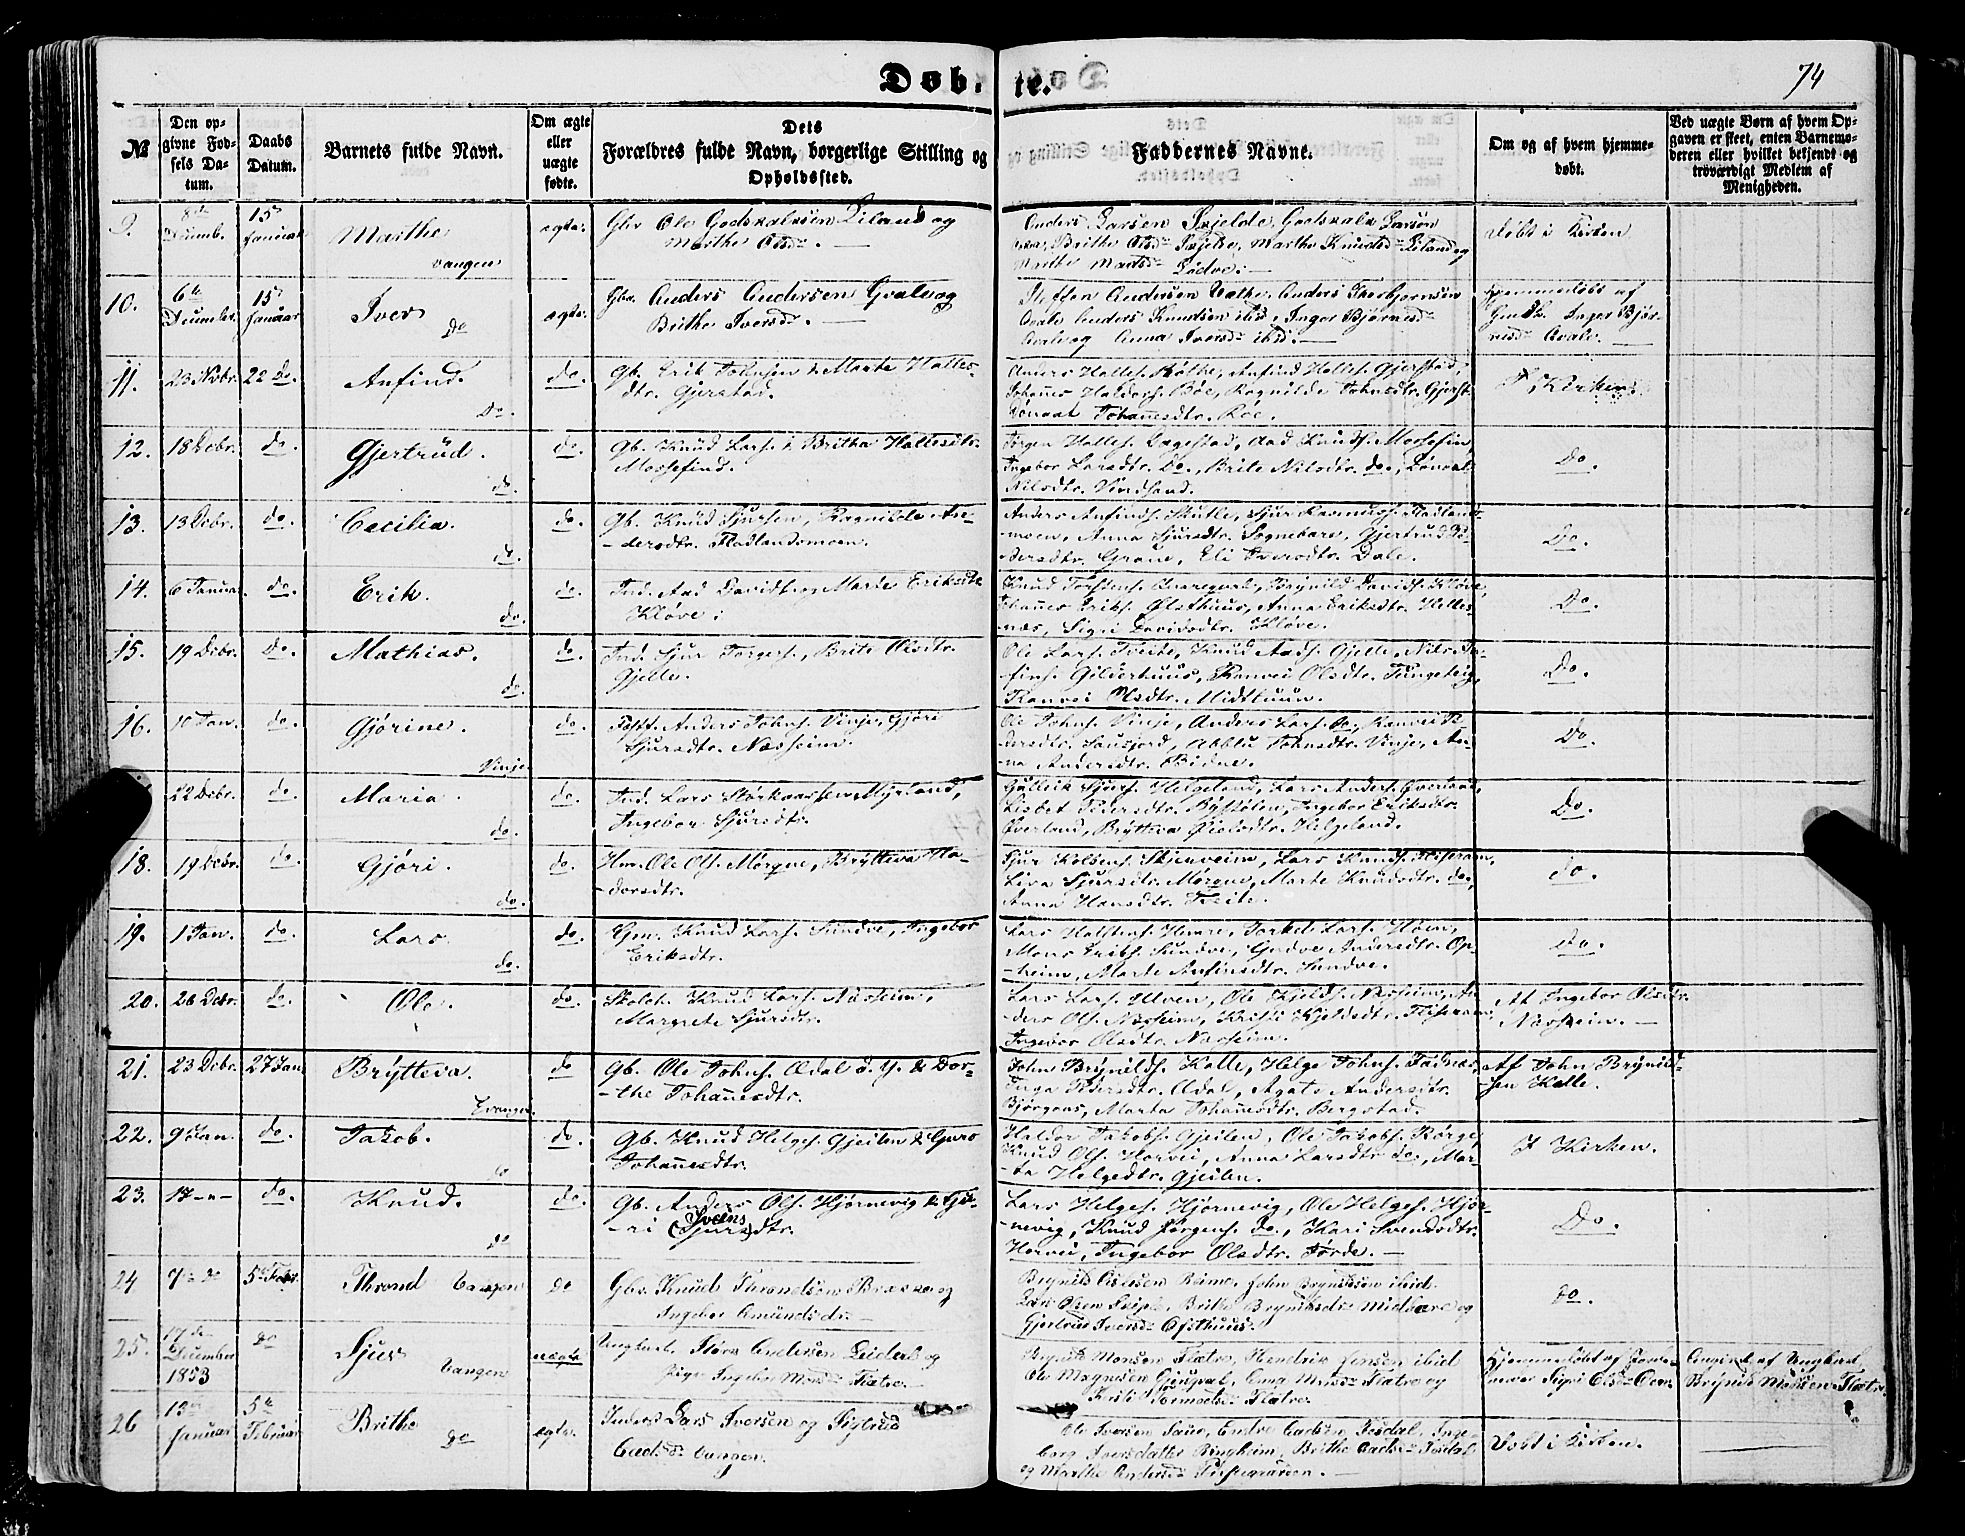 Døbte.
74
№
Den op-
givne Fød-
sels Da-
tum.
Daabs
Datum.
Barnets fulde Navn.
Om ægte
eller
uægte
fødte.
Dets
Forældres fulde Navn, borgerlige Stilling og
Opholdssted.
Faddernes Navne.
Om og af hvem hjemme-
døbt.
Ved uægte Børn af hvem Op-
gaven er skeet, enten Barnemo-
deren eller hvilket bekjendt og
troværdigt Medlem af
Menigheden.
9.
8de
15de
Januar
Marthe
Vangen
ægte.
Gbr Ole Godskalksen Liland og
Marthe Olsdr.
Anders Larsen Skjelde, Godskalk Larsen
Brithe Olsdr Skjelde, Marthe Knudsdr Liland og
Marthe Madsdr
Døbt i Kirken
10.
6te
Decembr.
15de
Januar
Iver
do
ægte.
Gbr. Anders Andersen Qvale og
Brithe Iversdr.
Steffen Andersen Anders Thorbjørnsen
Qvale Anders Knudsen ibid, Inger Bjørnsdr
Qvale og Anna Iversdr ibid.
Hjemmedøbt af
Inger Bjør-
nsdr Qvale.
11.
23 Nvbr.
22 do.
Anfind.
do.
do.
Gb. Erik Johnsen & Marte Halles-
dtr. Gjerstad.
Anders Halles. Røthe, Anfind Halles. Gjerstad,
Johannes Haldors. Bøe, Ragnilde Johnsdtr. Gjerst.
Johannesdtr. Røe.
I Kirken.
12.
18 Debr.
do.
Gjertrud.
do.
do
Gb. Knud Lars. & Britha Hallesdtr.
Mossefind.
Jørgen Halles. Dagestad, Aad Knuds. Mossefind,
Ingebor Larsdtr. do., Brite Nilsdtr. do.,
Nilsdtr. Vindsand.
Do.
13.
13 Debr.
do.
Cecilia.
do.
do.
Gb. Knud Sjursen, Ragnilde An-
-dersdtr. Flatlandsmoen.
Anders Anfinds. Skutle, Sjur Rasmus. Flatland-
moen, Anna Sjursdtr. Sognebare, Gjertrud
dersdtr. Grove, Eli Iversdtr. Dale.
Do.
14.
6 Januar
do.
Erik.
do.
do.
Ind. Aad Davids. og Marte Eriksdtr
Kløve.
Knud Brynild Davids. Kløve,
Johannes Eriks. Ølsthuus, Anna Eriksdtr. Helle-
næs, Sigri Davidsdtr. Kløve.
Do.
15.
19 Debr.
Do.
Mathias.
do.
do.
Ind. Sjur Torgers., Brite Olsdtr.
Gjelle.
Ole Lars. Tveite, Knud Aads. Gjelle, Nils An-
fins. Gilderhuus, Ranvei Olsdtr. Tungeteig,
Ranvei Olsdtr. Midthuun.
Do.
16.
10 Jan.
do.
Gjørine.
Vinje
do
Anders Johns. Vinje, Gjøri
Sjursdtr. Næsheim.
Ole Johns. Vinje, Anders Lars. do., Ranvei
dersdtr. Abblu Johnsdtr. Vinje, An-
na Andersdtr. Bidne.
Do.
22 Debr.
do.
Maria.
do.
do.
Ind. Lars Størkaarsen Myrland,
Ingebor Sjursdtr.
Gulleik Sjurs. Helgeland, Lars Anders.
Lisbet Ingebor Eriksdtr.
Øverland, Brytteva Nielsdtr. Helgeland.
Do.
18.
19 Debr.
do
Gjøri.
do.
do.
Hm. Ole Ols. Mørque, Brytteva Ha-
-dorsdtr.
Sjur Kolbens. Skjerveim, Lars Knuds. Flisram,
Liva Sjursdtr. Mørque, Marte Knudsdtr. do.,
Anna Hansdtr. Tveite.
do.
19.
1 Jan.
do.
Lars.
do.
do.
Gjm. Knud Lars. Sundve, Ingebor
Eriksdtr.
Lars Halstens. Himre, Torkel Lars. Høim,
Mons Eriks. Sundve, Gudve Andersdtr. Op-
-heim, Marte Anfinsdtr. Sundve.
Do.
20.
26 Debr.
do.
Ole.
do.
Skoleh. Knud Lars. Næsheim,
Margrete Sjursdtr.
Lars Lars. Ulven, Ole Kjelds. Næsheim, An-
ders Ols. Næsheim, Kristi Kjeldsdtr. Flisram,
Ingebor Olsdtr. Næsheim.
Af Ingebor Olsdtr.
Næsheim.
21.
23 Debr.
27 Jan
Brytteva.
Evanger.
do
Gb. Ole Johns. Ædal d. Y. & Dor-
-the Johannesdtr.
John Brynilds. Kalle, Helge Johns. Fadnæs,
Inga Pedersdtr. Ædal, Agate Andersdtr.
Bjørgaas, Marta Johannesdtr. Bergstad.
Af John Brynild-
sen Kalle.
22.
9 Jan.
do.
Jakob.
do
do.
Gb. Knud Helges. Gjeilen & Guro
Johannesdtr.
Haldor Jakobs. Gjeilen, Ole Jakobs. Rørge,
Knud Ols. Horvei, Anna Larsdtr. do., Mar-
-ta Helgesdtr. Gjeilen.
I Kirken.
23.
17-"-
do.
Knud.
do
do.
Gb. Anders Ols. Hjørnevig & Gjø-
-ri (Sjurs)dtr.
Sveins
Lars Helges. Hjørnevig, Ole Helges. Hjør-
-nevig, Knud Jørgens. do., Kari Svendsdtr.
Horvei, Ingebor Olsdtr. Førde.
Do.
24
7de do
5te Febr.
Thrond Vangen
do
Gbr. Knud Throndsen Brække og
Ingebor Amundsdr.
Brynild Reime, John Brynildsen ibid.
Lars Olsen Brithe Brynildsdr Midbøre og
Gjertrud Iversdr Ofsthuus.
do.
25.
17de
December
1853
do
Sjur
Vangen
uægte
Ungkarl Andersen Leidal og
Pige Ingebor Monsdr Flatre.
Brynild Monsen Flatre, Hendrik Jensen ibid
Ole Magnesen Gjukvæl, Anna Monsdr Flatre og
Kristi Flatre.
Hjemmedøbt af Jorde-
moder Sigri Olsdr
Angivet af Ungkarl,
Brynild Monsen Flatre
26
13de
Januar
5te
Februar
Brithe
do
ægte.
Inderst Lars Iversen og Sigtrud
Vangen.
Ole Iversen Endre Inge-
borg Iversdatter Ringheim, Brithe
og Marthe Andersdr
Døbt i Kirken.